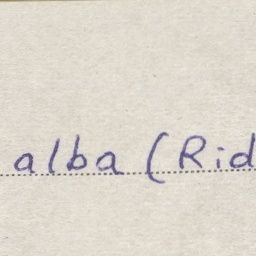 alba (Rid